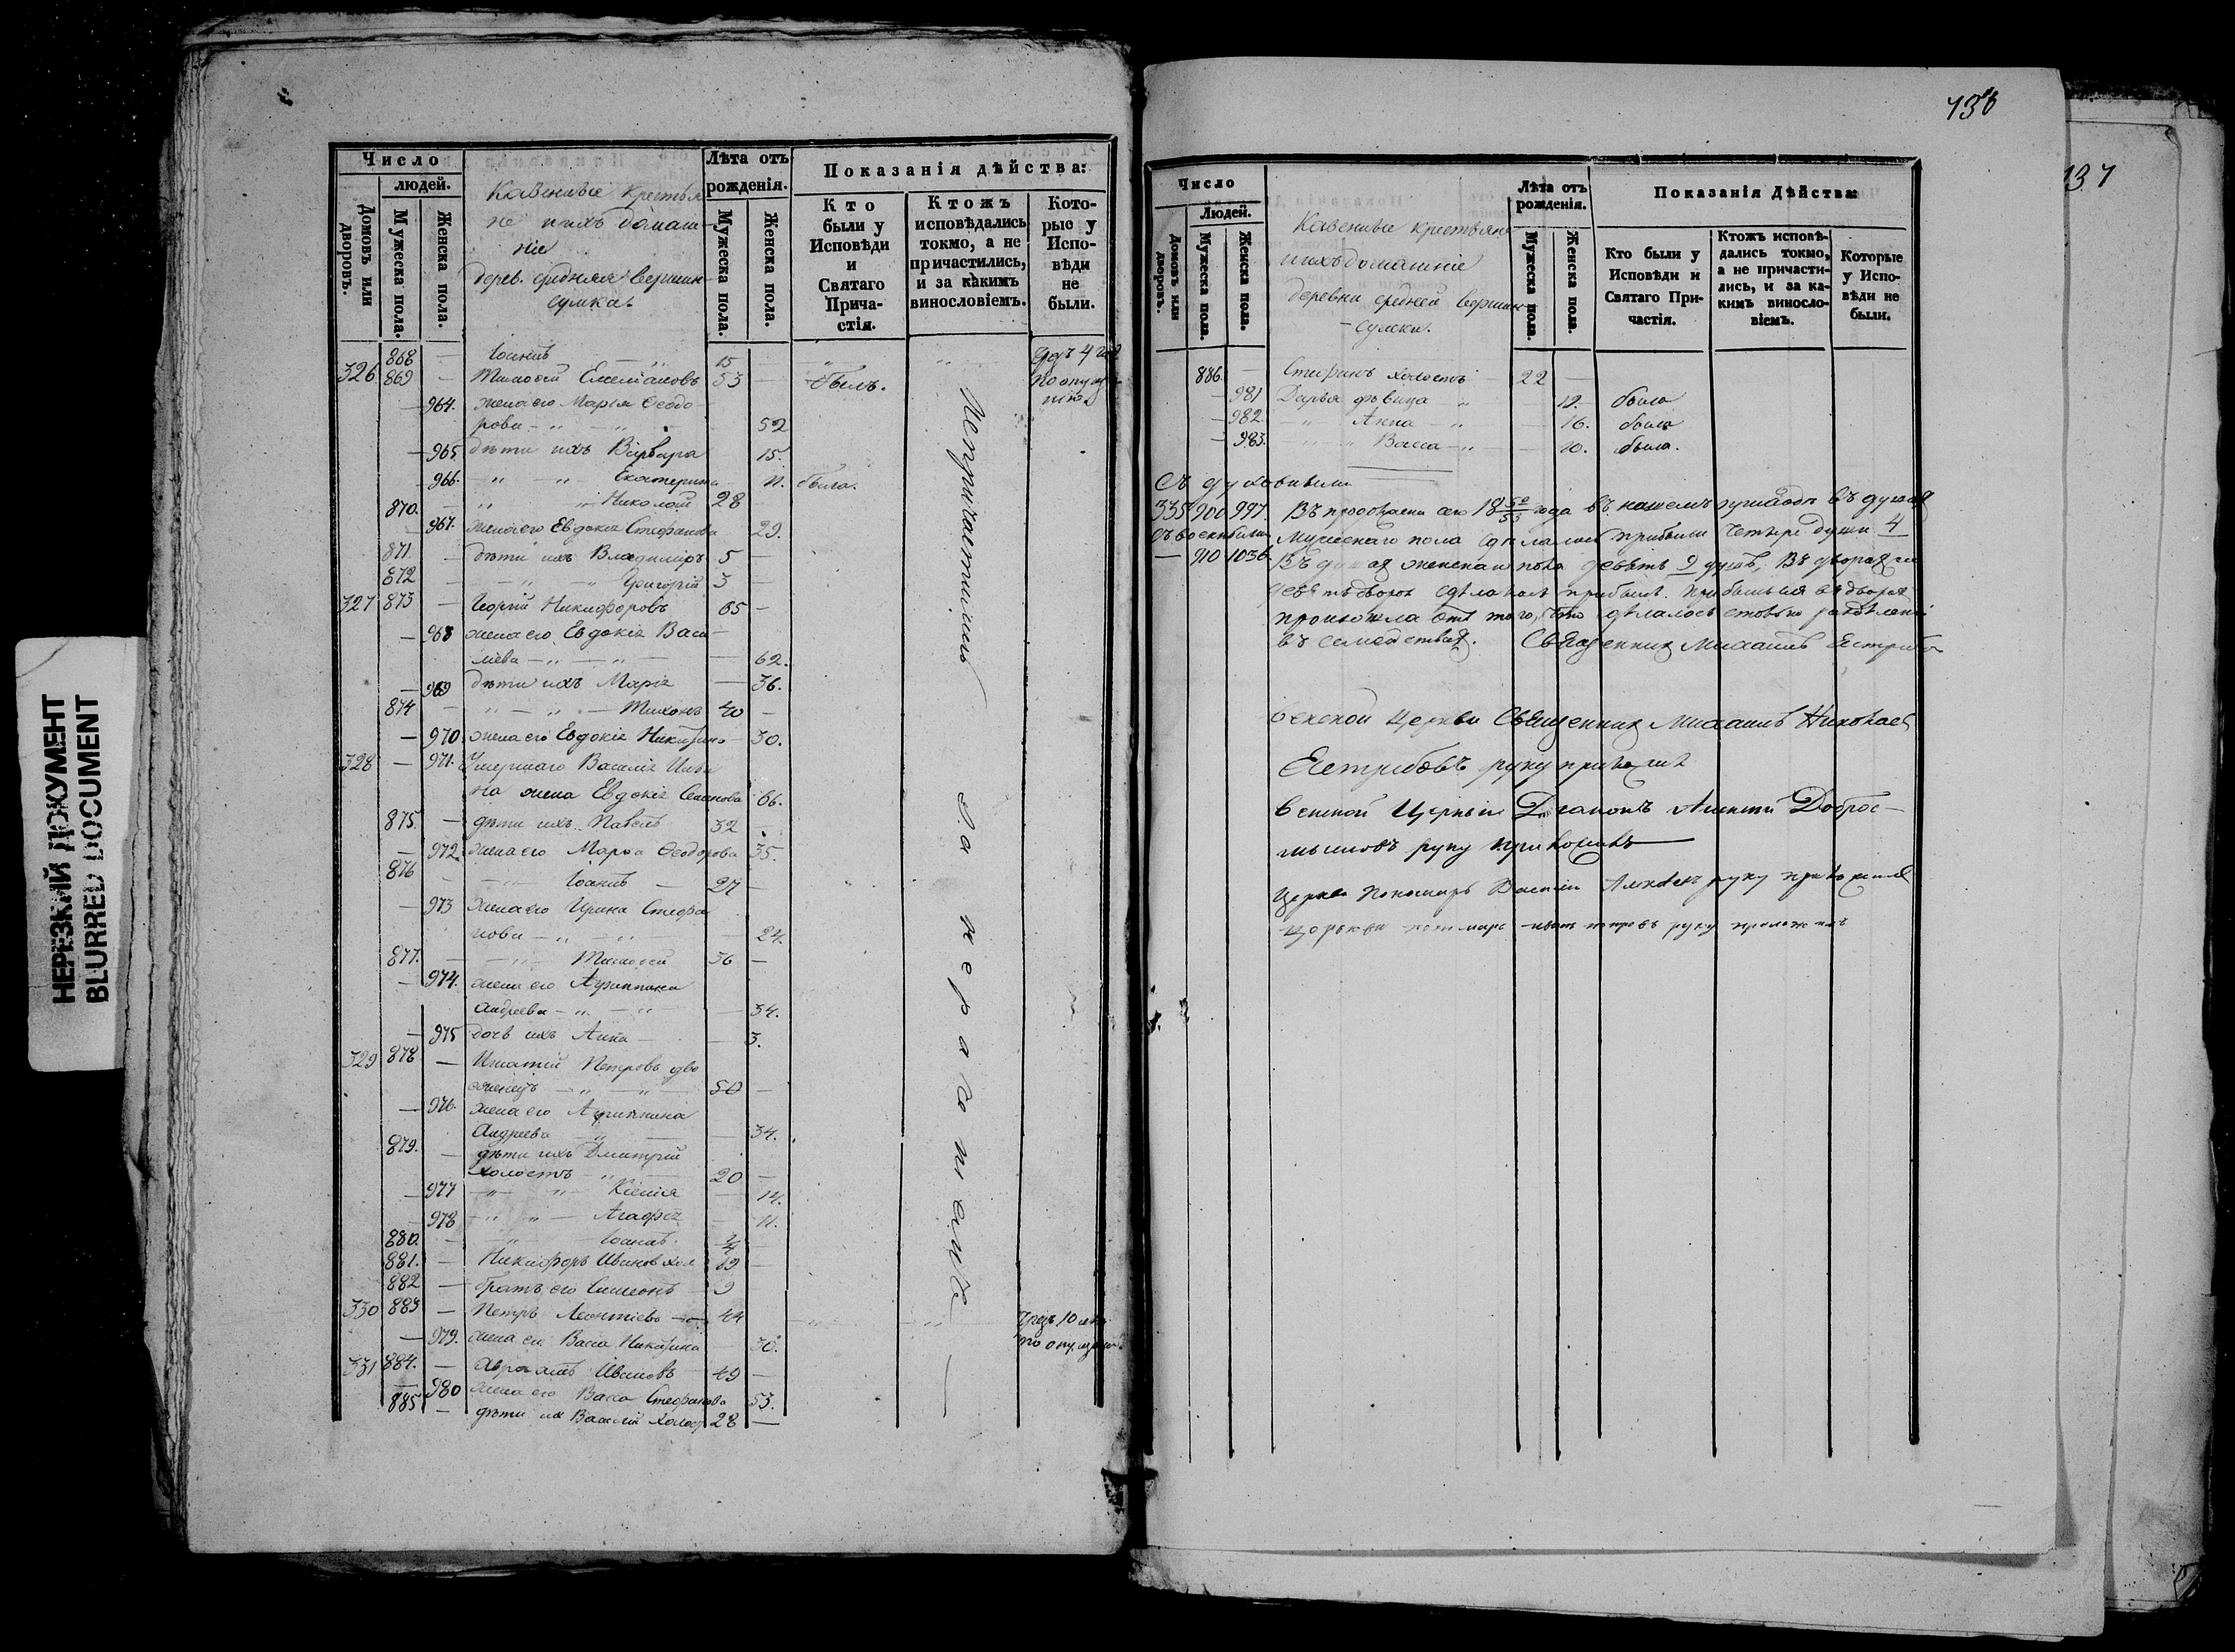 НЕРЕЗКИЙ ДОКУМЕНТ
BLURRED DOCUMENT
Число
людей.
Домовъ или дворовъ.
Мужеска пола.
Женска пола.
Казенные крестья
не ихъ домаш-
ніе
дерев. средняя вершин-
Лѣта отъ рожденія.
Мужеска пола.
Женска пола.
Показанія дѣйства:
Кто были у Исповѣди и Святаго Прича-стія.
Ктожъ исповѣдались токмо, а не причастились, и за какимъ винословіемъ.
Кото-рые у Испо-вѣди не были.
868 — Іоаннъ 15
326 869 — Тимофей Емельяновъ 53 — былъ. по опущ
— 964. жена его Марія Ѳеодо-
рова 52
— 965. дѣти ихъ Варвара 15.
966. Екатерина 11. была.
870. Николай 28
967. жена его Евдокія Стефанова 29.
871 — дѣти ихъ Владимиръ 5 —
872 — Григорій 3 —
327 873 — Георгій Никифоровъ 65 —
— 968 жена его Евдокія Васи-
льева 62.
— 969 дѣти ихъ Марія — 36.
874 — Тихонъ 40 —
— 970. жена его Евдокія Никитина 30.
328 — 971. Умершаго Василія
на жена Евдокія Семенова 66.
875. — дѣти ихъ Павелъ 32
— 972. жена его Марѳа Ѳеодорова 35.
876 — Іоаннъ — 27 —
— 973 жена его Ирина Стефа
нова 24.
877. — Тимофей 36 —
— 974. жена его Агриппина
Андреева 34.
— 975 дочь ихъ Анна 3.
329 878 — Игнатій Петровъ дво
еженецъ 50 —
— 976. жена его Агриппина
Андреева 34.
879. — дѣти ихъ Дмитрій
холостъ 20 —
— 977 Ксенія 14.
— 978 Агафія 11.
880. — Іоаннъ
881. — Никифоръ Ивановъ хол 19 —
882 — братъ его Симеонъ 9
330 883 — Петръ Леонтіевъ 44 чрезъ 10 лѣтъ
— 979. жена его Васса Никитина 30. по опущенію
331 884. — Авраамъ Ивановъ 49 —
— 980 жена его Васса Стефанова 53.
885 — дѣти их Василій холост 28 —
Непричастились за неракаяніемъ
136
137
Число
Людей.
Домовъ или дворовъ.
Мужеска пола.
Женска пола.
Казенные крестьяне
ихъ домашніе
деревни средней вершин
Лѣта отъ рожденія.
Мужеска пола.
Женска пола.
Показанія Дѣйства:
Кто были у Исповѣди и Святаго При-частія.
Ктожъ исповѣ-дались токмо, а не причасти-лись, и за ка-кимъ винословіемъ.
Которые у Испо-вѣди не были.
886. — Стефанъ холостъ 22 —
— 981 Дарья дѣвица 19. была
— 982. Анна 16. была
— 983. Васса 10. была.
Съ духовными
335 900 997. Въ продолженіи сего 18 года въ нашемъ приходѣ въ душахъ
Съ военными Мужескаго пола сдѣлалось прибыли четыре души 4
— 910 1036. Въ душахъ женскаго пола девять 9 душъ, Въ дворахъ же
девять дворовъ сдѣлалось прибыли. Прибыль въ дворахъ
произошла отъ того, что сдѣлалось столько раздѣленій
въ семействахъ. Священникъ Михаилъ Ястребовъ
Церкви Священникъ Михаилъ Николаевъ
Ястребовъ руку приложилъ
Церкви Діаконъ Доброс-
мысловъ руку приложилъ
Церкви Пономарь Василій руку приложилъ
церкви пономарь руку приложилъ